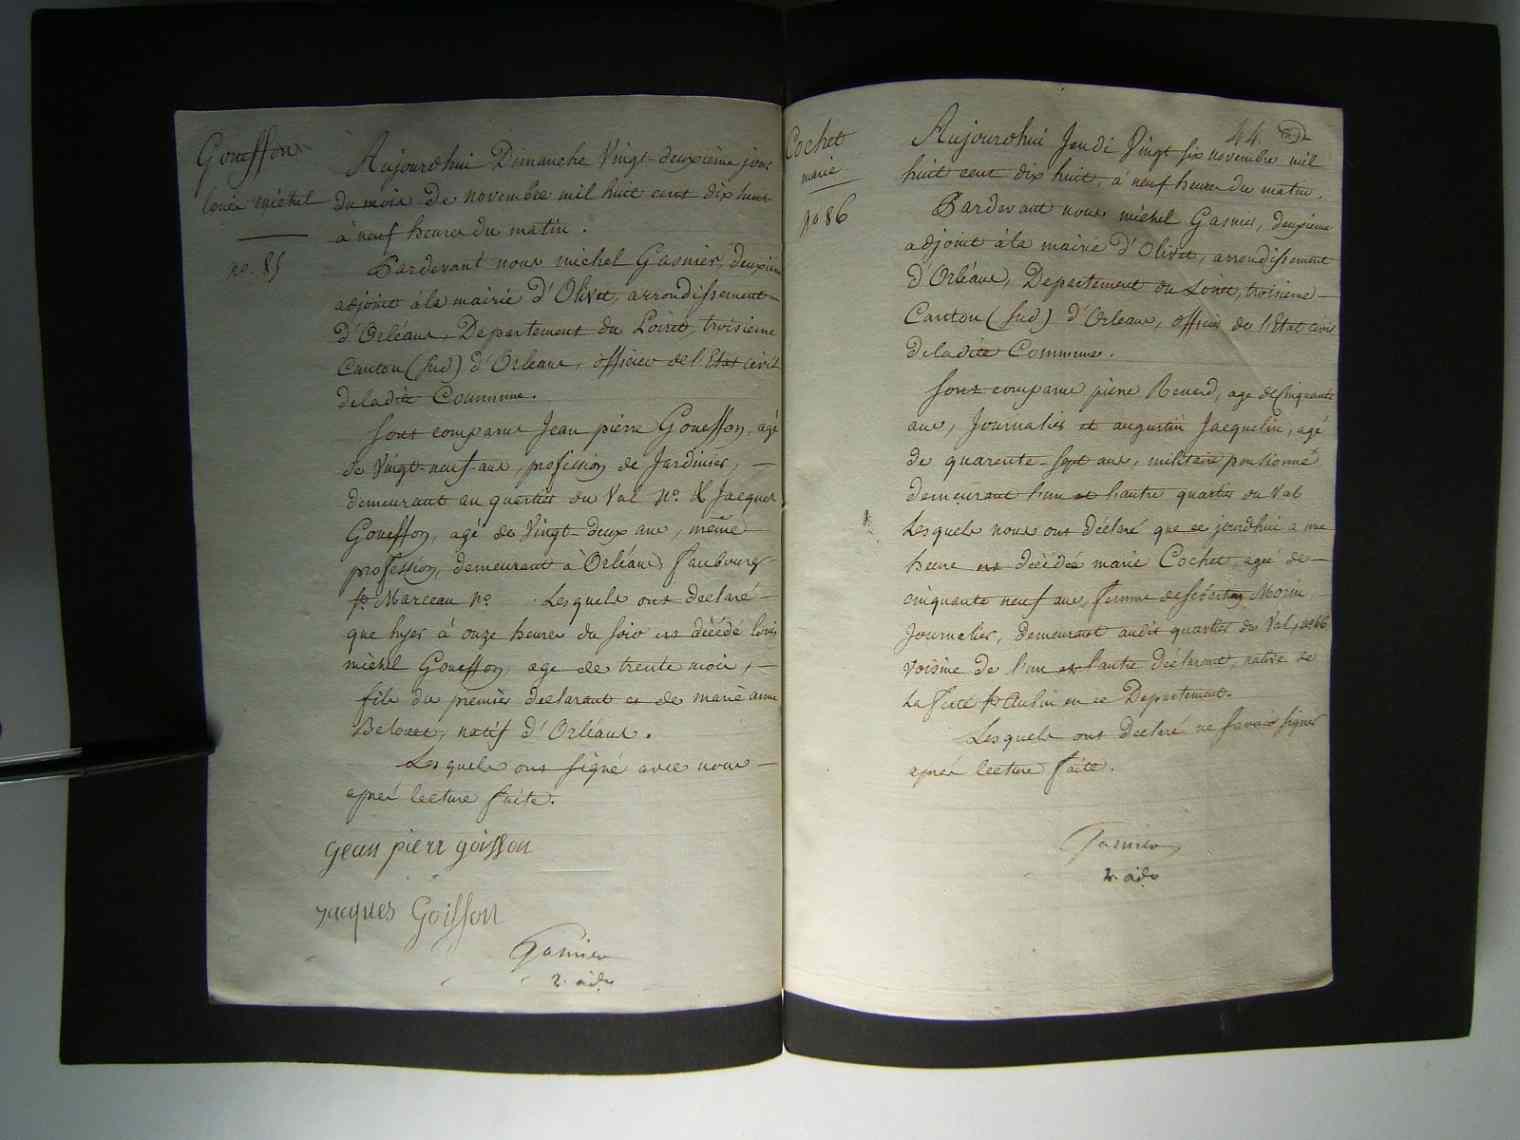 Goueffon
louis michel
no. 85
Aujourdhui Dimanche Vingt-deuxième jour
du mois de novembre mil huit cent dix huit
à neuf heures du matin.
Pardevant nous michel Gasnier, deuxieme
adjoint à la mairie d'Olivet, arrondissement
d'Orléans, Departement du Loiret, troisieme
Canton (sud) d'Orleans, officier de l'Etat civil
de ladite Commune.
Sont comparus Jean pierre Goueffon, agé
de Vingt-neuf ans, profession de Jardinier,
demeurant au quartier du Val no. & Jacques
Goueffon, agé de Vingt-deux ans, même
profession, demeurant à Orléans faubourg
St. Marceau no. Lesquels ont declaré
que hyer à onze heures du soir est décédé louis
michel Goueffon, age de trente mois,
fils du premier declarant et de marie anne
natif d'Orléans.
Lesquels ont signé avec nous
après lecture faite.
gean pierr goisson
Jacques Goisson
Gasnier
2. adj.
44.
Cochet
marie
no 86
Aujourdhui Jeudi Vingt six novembre mil
huit cent dix huit, à neuf heures du matin.
Pardevant nous michel Gasnier, deuxieme
adjoint à la mairie d'Olivet, arrondissement
d'Orléans, Departement du Loiret, troisieme
Canton (sud) d'Orleans, officier de l'Etat civil
de ladite Commune.
Sont comparus pierre agé de cinquante
ans, Journalier et augustin Jacquelin, agé
de quarente-sept ans, militaire pensionné
demeurant l'un et l'autre quartier du Val
Lesquels nous ont déclaré que ce jourdhui a une
heure est décédée marie Cochet, agée de
cinquante neuf ans, femme de Morin
Journalier, demeurant audit quartier du Val, no 66
voisine de l'un et l'autre déclarant, native de
La ferté St Aubin en ce Departement.
Lesquels ont declaré ne savoir signer
après lecture faite.
Gasnier
2. adj.